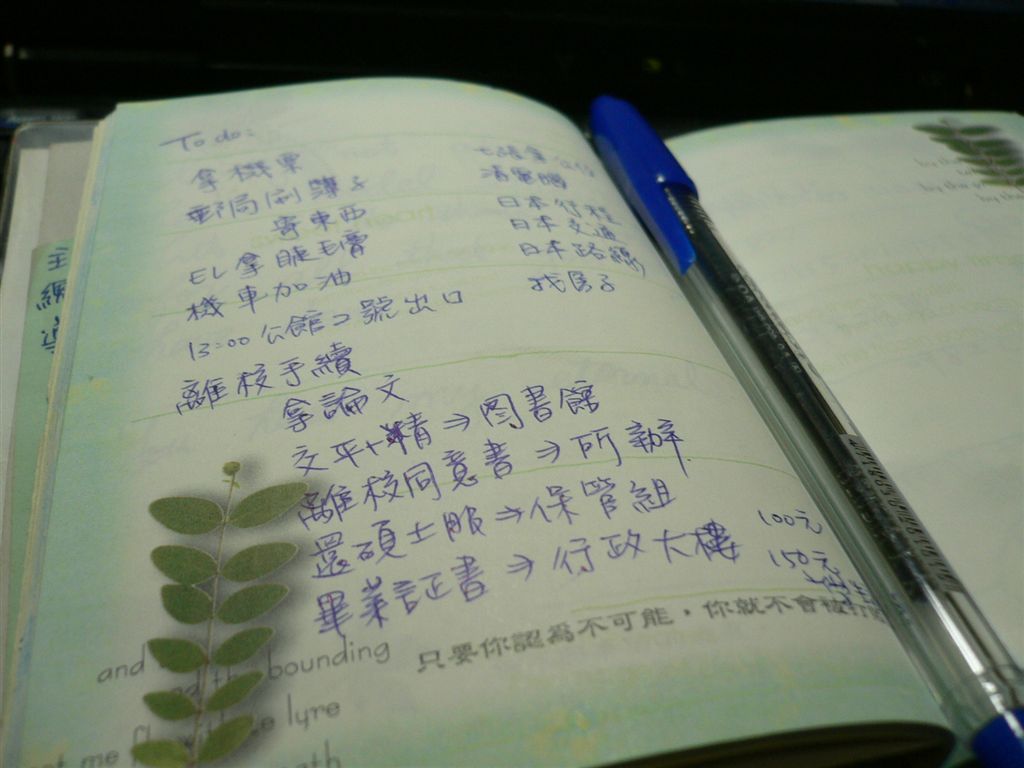 To do:
拿機票
郵局刷簿子
寄東西
EL拿睫毛膏
機車加油
13:00 公館2號出口
清電腦
日本行程
日本交通
日本路線
找房子
離校手續
拿論文
文平+精⇒图書館
離校同意書⇒所辦
還碩士服⇒保管組
畢業証書⇒行政大樓
100元
150元
只要你認為不可能，你就不會
and
bounding
lyre
me